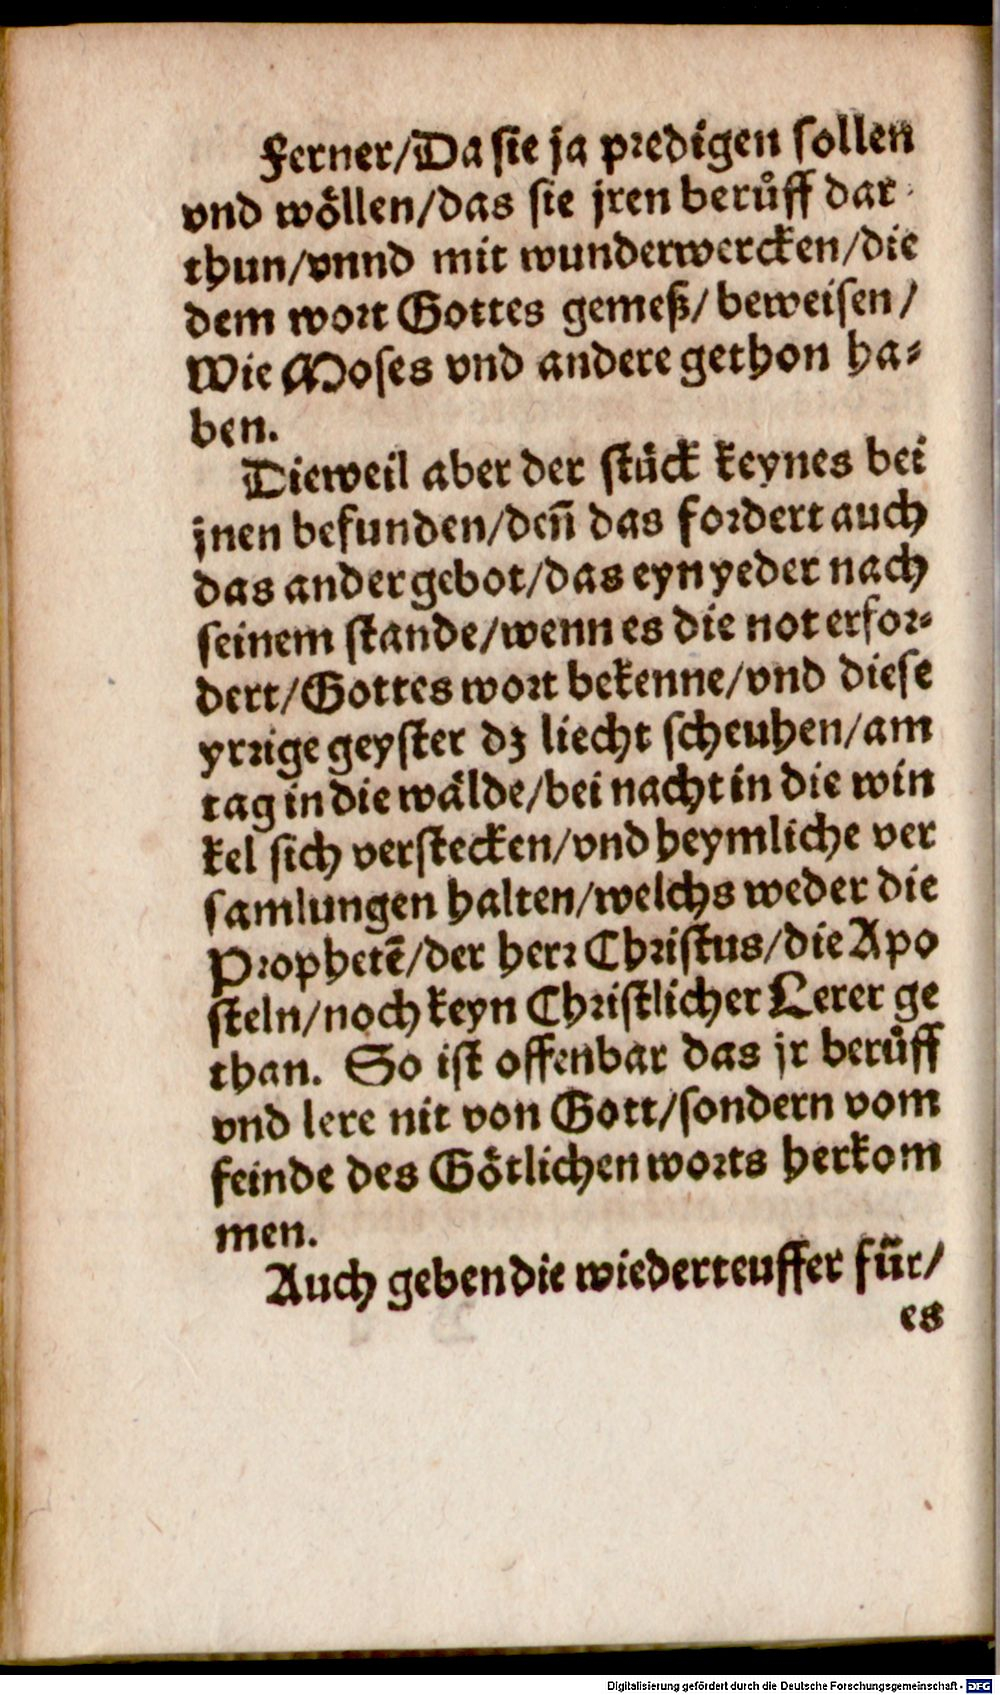 Ferner/Da sie ja predigen sollen
vnd wöllen/das sie jren berůff dar
thun/vnnd mit wunderwercken/die
dem wort Gottes gemeß/beweisen/
Wie Moses vnd andere gethon ha⸗
ben.
Dieweil aber der stück keynes bei
jnen befunden/deñ das fordert auch
das ander gebot/das eyn yeder nach
seinem stande/wenn es die not erfor⸗
dert/Gottes wort bekenne/vnd diese
yrrige geyster dz liecht scheuhen/am
tag in die wälde/bei nacht in die win
kel sich verstecken/vnd heymliche ver
samlungen halten/welchs weder die
Prophetē/der herr Christus/die Apo
steln/noch keyn Christlicher Lerer ge
than. So ist offenbar das jr berůff
vnd lere nit von Gott/sondern vom
feinde des Götlichen worts herkom
men.
Auch geben die wiederteuffer für/
es
Digitalisierung gefördert durch die Deutsche Forschungsgemeinschaft - DFG